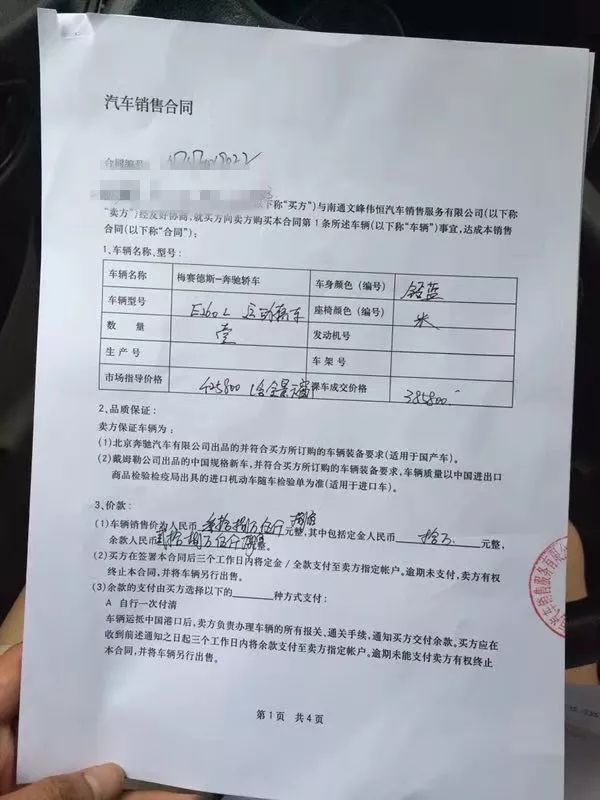 汽车销售合同
合同编号
下称“买方”)与南通文峰伟恒汽车销售服务有限公司(以下称
“卖方”)经友好协商,就买方向卖方购买本合同第1条所述车辆(以下称“车辆”)事宜,达成本销售
合同(以下称“合同”):
1、车辆名称、型号:
车辆名称 梅赛德斯-奔驰轿车 车身颜色(编号)
车辆型号 E260L 运动轿车 座椅颜色(编号) 米
数 量 壹 发动机号
生 产 号 车 架 号
市场指导价格 425800(含全景天窗 裸车成交价格 385800
2、品质保证:
卖方保证车辆为:
(1)北京奔驰汽车有限公司出品的并符合买方所订购的车辆装备要求(适用于国产车)。
(2)戴姆勒公司出品的中国规格新车,并符合买方所订购的车辆装备要求,车辆质量以中国进出口
商品检验检疫局出具的进口机动车随车检验单为准(适用于进口车)。
3、价款:
(1)车辆销售价为人民币叁拾捌万伍仟捌佰元整,其中包括定金人民币拾万元整,
余款人民币贰拾捌万伍仟捌佰整。
(2)买方在签署本合同后三个工作日内将定金/全款支付至卖方指定帐户。逾期未支付,卖方有权
终止本合同,并将车辆另行出售。
(3)余款的支付由买方选择以下的____种方式支付:
A 自行一次付清
车辆运抵中国港口后,卖方负责办理车辆的所有报关、通关手续,通知买方交付余款。买方应在
收到前述通知之日起三个工作日内将余款支付至卖方指定帐户。逾期未能支付卖方有权终止
本合同,并将车辆另行出售。
第1页 共4页